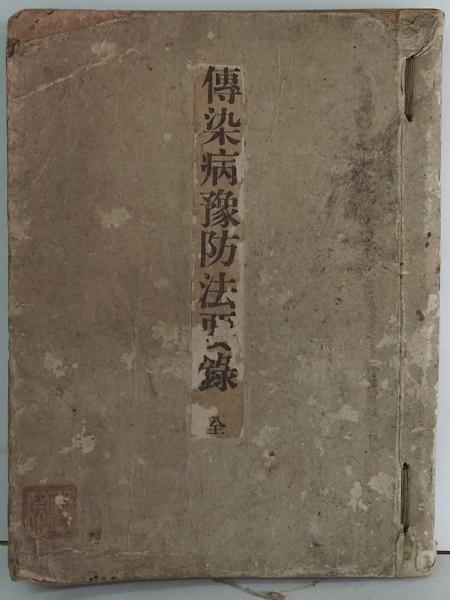 傳染病豫防法要錄
全